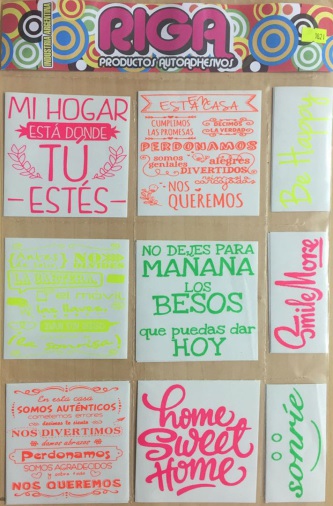 INDUSTRIA ARGENTINA
RIGA
PRODUCTOS AUTOADHESIVOS
MI HOGAR
ESTÁ DONDE
TÚ
-ESTÉS-
ESTA CASA
CUMPLIMOS
LAS PROMESAS
DECIMOS
LA VERDAD
PERDONAMOS
somos
geniales
alegres
DIVERTIDOS
NOS
QUEREMOS
Be Happy
NO DEJES PARA
MAÑANA
LOS
BESOS
que puedas dar
HOY
Smile More
En esta casa
SOMOS AUTÉNTICOS
cometemos errores
NOS DIVERTIMOS
damos abrazos
Perdonamos
SOMOS AGRADECIDOS
y sobre todo
NOS QUEREMOS
home
Sweet
Home
sonríe